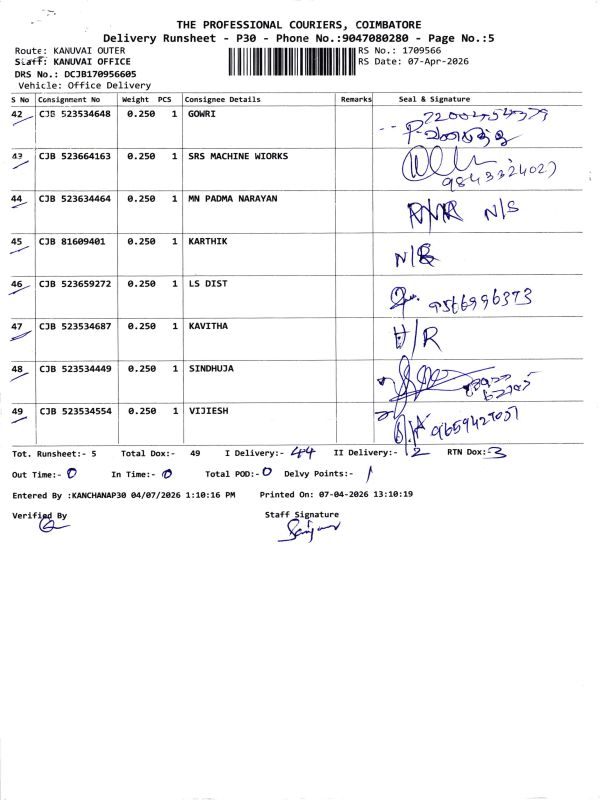 THE PROFESSIONAL COURIERS, COIMBATORE
Delivery Runsheet - P30 - Phone No.:9047080280 - Page No.:5
Route: KANUVAI OUTER RS No.: 1709566
Staff: KANUVAI OFFICE RS Date: 07-Apr-2026
DRS No.: DCJB170956605
Vehicle: Office Delivery
S No Consignment No Weight PCS Consignee Details Remarks Seal & Signature
42 CJB 523534648 0.250 1 GOWRI
43 CJB 523664163 0.250 1 SRS MACHINE WIORKS
44 CJB 523634464 0.250 1 MN PADMA NARAYAN N/S
45 CJB 81609401 0.250 1 KARTHIK
46 CJB 523659272 0.250 1 LS DIST 9566996373
47 CJB 523534687 0.250 1 KAVITHA H/R
48 CJB 523534449 0.250 1 SINDHUJA
49 CJB 523534554 0.250 1 VIJIESH
Tot. Runsheet:- 5 Total Dox:- 49 I Delivery:- 44 II Delivery:- 2 RTN Dox:- 3
Out Time:- 0 In Time:- 0 Total POD:- 0 Delvy Points:- 1
Entered By :KANCHANAP30 04/07/2026 1:10:16 PM Printed On: 07-04-2026 13:10:19
Verified By Staff Signature